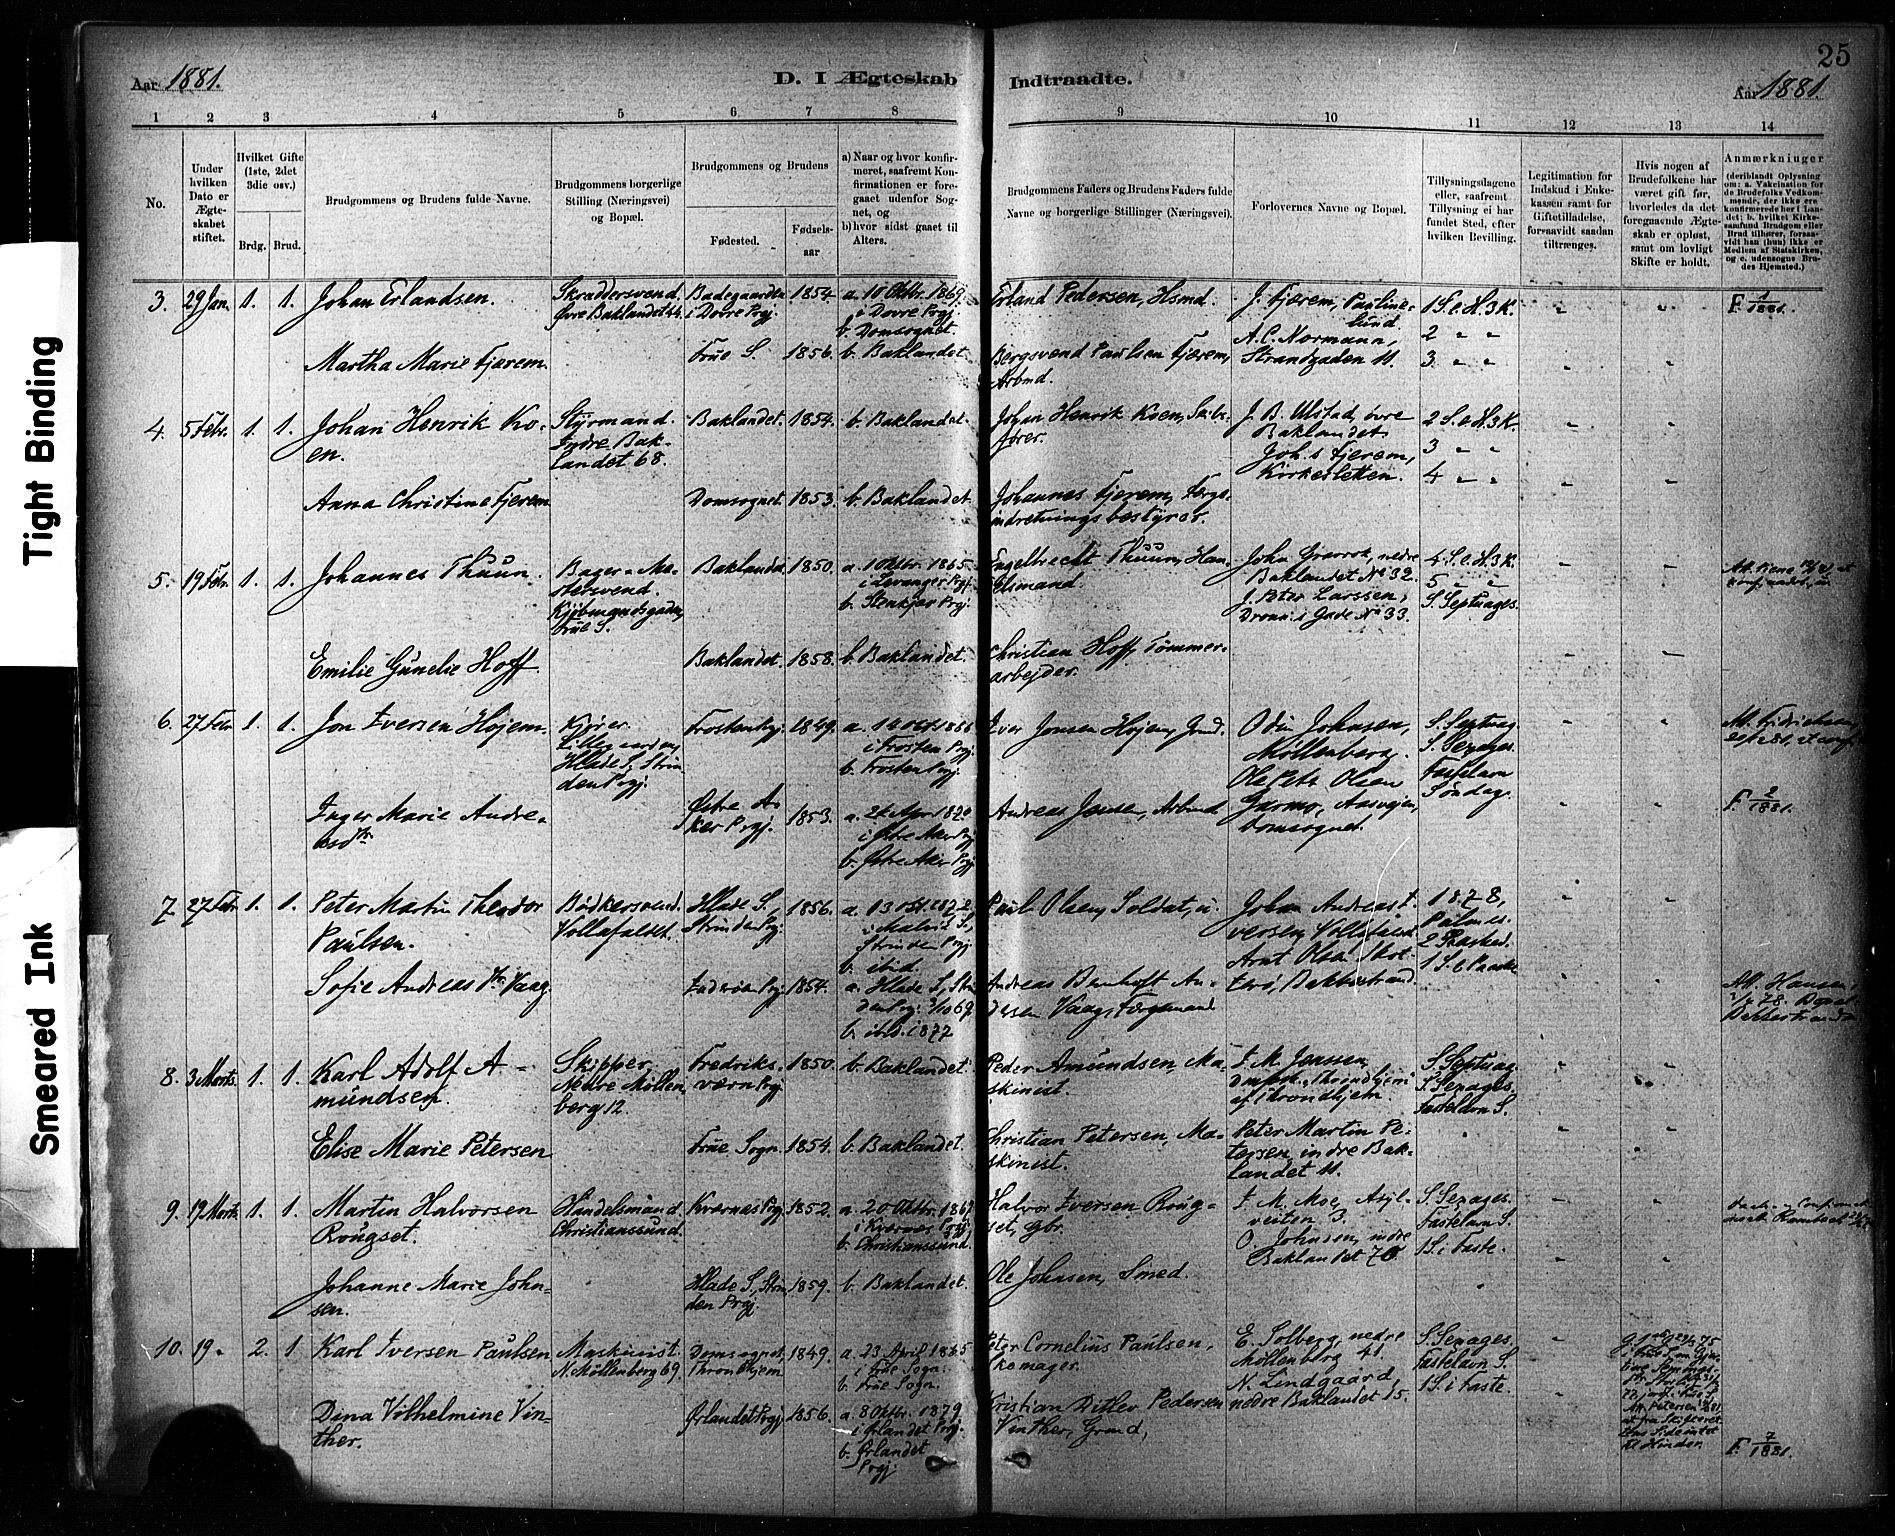 25
Aar 1881.
D. I Ægteskab Indtraadte.
Aar 1881.
1 2 3 4 5 6 7 8 9 10 11 12 13 14
No.
Under hvilken Dato er Ægteskabet stiftet.
Hvilket Gifte (1ste, 2det 3die osv.)
Brdg. Brud.
Brudgommens og Brudens fulde Navne.
Brudgommens borgerlige Stilling (Næringsvei) og Bopæl.
Brudgommens og Brudens
Fødested. Fødselsaar
a) Naar og hvor konfirmeret, saafremt Konfirmationen er foregaaet udenfor Sognet, og
b) hvor sidst gaaet til Alters.
Brudgommens Faders og Brudens Faders fulde Navne og borgerlige Stillinger (Næringsvei).
Forlovernes Navne og Bopæl.
Tillysningsdagene eller, saafremt Tillysning ei har fundet Sted, efter hvilken Bevilling.
Legitimation for Indskud i Enkekassen samt for Giftetilladelse, forsaavidt saadan tiltrænges.
Hvis nogen af Brudefolkene har været gift før, hvorledes da det foregaaende Ægteskab er opløst, samt om lovligt Skifte er holdt.
Anmærkninger
(deriblandt Oplysning om: a. Vakcination for de Brudefolks Vedkommende, der ikke ere konfirmerede her i Landet; b. hvilket Kirkesamfund Brudgom eller Brud tilhører, forsaavidt han (hun) ikke er Medlem af Statskirken, og c. udensogns Brudes Hjemsted.)
3. 29 Jan. 1. 1. Johan Erlandsen.
Skræddersvend. Øvre Baklandet 44.
Badegaarden i Dovre Prgj. 1854
a. 10 Oktbr. 1869 i Dovre Prgj. b. Domsognet.
Erland Pedersen, Hsmd.
J. Fjærem, Paulinelund.
A. C. Normann, Strandgaden 11.
1 S. e. H. 3 K.
2 " "
3 " "
F. 1/1881.
Martha Marie Fjærem
Frue S. 1856. b. Baklandet
Bergsvend Paulsen Fjærem, Arbmd.
4. 5 Febr. 1. 1. Johan Henrik Koen.
Styrmand. Indre Baklandet 68.
Baklandet. 1854. b. Baklandet.
Johan Henrik Koen, Skibsfører.
J. B. Ulstad, øvre Baklandet.
Joh.s Fjerem, Kirkesletten.
2 S. e. H. 3 K.
3 " "
4 " "
Anna Christine Fjerem
Domsognet. 1853. b. Baklandet
Johannes Fjerem, Færgeindretningsbestyrer.
5. 19 Febr. 1. 1. Johannes Thuun.
Bager-Mestersvend. Kjøbmandsgaden, Frue S.
Baklandet. 1850.
a. 1 Oktbr. 1865 i Levanger Prgj. b. Stenkjær Prgj.
Engelbrecht Thuun, Handelsmand
nedre Baklandet No 32.
J. Peter Larssen, Dronn.s Gade No 33.
4 S. e. H. 3 K.
5 " "
S. Septuages.
Emilie Gunelie Hoff.
Baklandet. 1858. b. Baklandet.
Christian Hoff, Tømmerarbejder.
6. 27 Febr 1. 1. Jon Iversen Højem
Hlade S., Strinden Prgj.
Frosten Prgj. 1849.
i Frosten Prgj. b. Frosten Prgj.
Iver Jonsen Højem, Grd.
Odin Johnsen, Møllenberg.
Ole Petr Olsen Garmo, Aasvejen, Domsognet.
S. Septuag.
S. Sexages.
Fastelavn Søndag.
F. 2/1881.
Inger Marie Andreasdtr
Østre Aker Prgj. 1853.
i Østre Aker Prgj b. Østre Aker Prgj
Andreas Jensen, Arbmd
7. 27 Febr 1. 1. Peter Martin Theodor Paulsen.
Bødkersvend. Vollafaldet.
Hlade S., Strinden Prgj. 1856.
i Malvik S., Strinden Prgj. b. ibid.
Paul Olsen, Soldat,
Johan Andreas Iversen, Vollafaldet
Arnt Olsen
1878,
Palmes.
2 Paasked.
1 S. e. Paaske
Sofie Andreasdtr Vaag
Inderøen Prgj. 1854.
a. Hlade S., Strinden Prgj. 3/10 69 b. ibid. 1872
8. 3 Marts. 1. 1. Karl Adolf Amundsen.
Skipper, Nedre Møllenberg 12.
Fredriksværn Prgj. 1850. b. Baklandet.
Peder Amundsen, Maskinist.
S. Septuag.
S. Sexages.
Fastelavn S.
Elise Marie Petersen
Frue Sogn. 1854. b. Baklandet.
Christian Petersen, Maskinist.
Peter Martin Petersen, indre Baklandet 11.
9. 19 Marts 1. 1. Martin Halvorsen Rougset.
Handelsmand. Christianssund.
Kværnæs Prgj. 1852.
a. 20 Oktbr. 1867 i Kværnæs Prgj. b. Christianssund.
Halvor Iversen Rougset, gbr.
I. M. Moe, Asylveiten 3.
O. Johnsen, indre Baklandet 70.
S. Sexages.
Fastelavn S.
1 S. i Faste.
Johanne Marie Johnsen.
Hlade S., Strinden Prgj. 1859. b. Baklandet.
Ole Johnsen, Smed.
10. 19 " 2. 1. Karl Iversen Paulsen
Maskinist. N. Møllenberg 69.
Domsognet, Throndhjem 1849.
a. 23 April 1865 i Frue Sogn. b. Frue Sogn.
Peter Cornelius Paulsen, Skomager.
E. Solberg, nedre Møllenberg 41.
N. Lindgaard, nedre Baklandet 15.
S. Sexages.
Fastelavn S.
1 S. i Faste.
Dina Vilhelmine Vinther.
Ørlandet Prgj. 1856.
a. 8 Oktbr. 1879. i Ørlandet Prgj. b. Ørlandet Prgj
Kristian Ditlev Pedersen Vinther, Grmd,
F. 7/1881.
Tight Binding
Smeared Ink